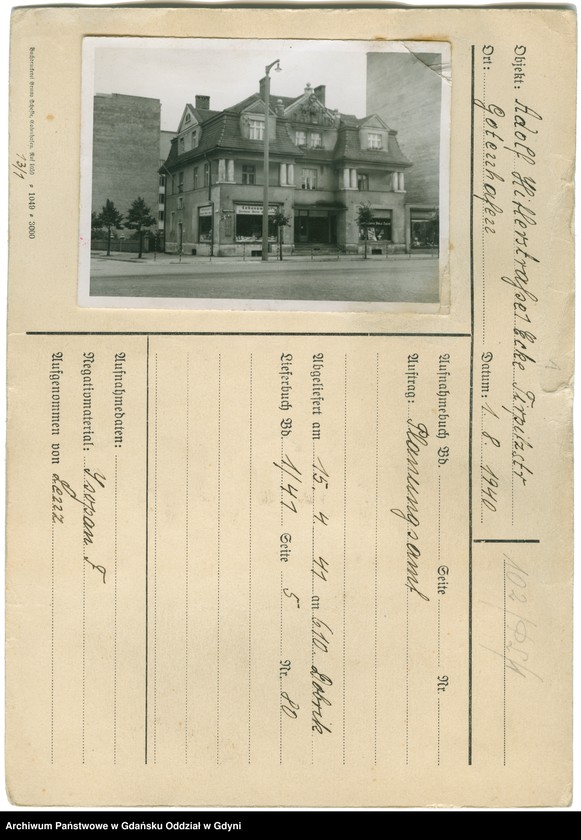 Objekt: Adolf Hitlerstraße 1 Ecke Tirpitzstr
Ort: Gotenhafen Datum: 1. 8. 1940
Aufnahmebuch Bd. Seite Nr.
Auftrag: Planungsamt
Abgeliefert am 15. 4. 41 an 610. Dobrik
Lieferbuch Bd. 1/41 Seite 5 Nr. 80
Aufnahmedaten:
Negativmaterial: Isopan F
Aufgenommen von
13/1
* 1049 * 3000
Archiwum Państwowe w Gdańsku Oddział w Gdyni